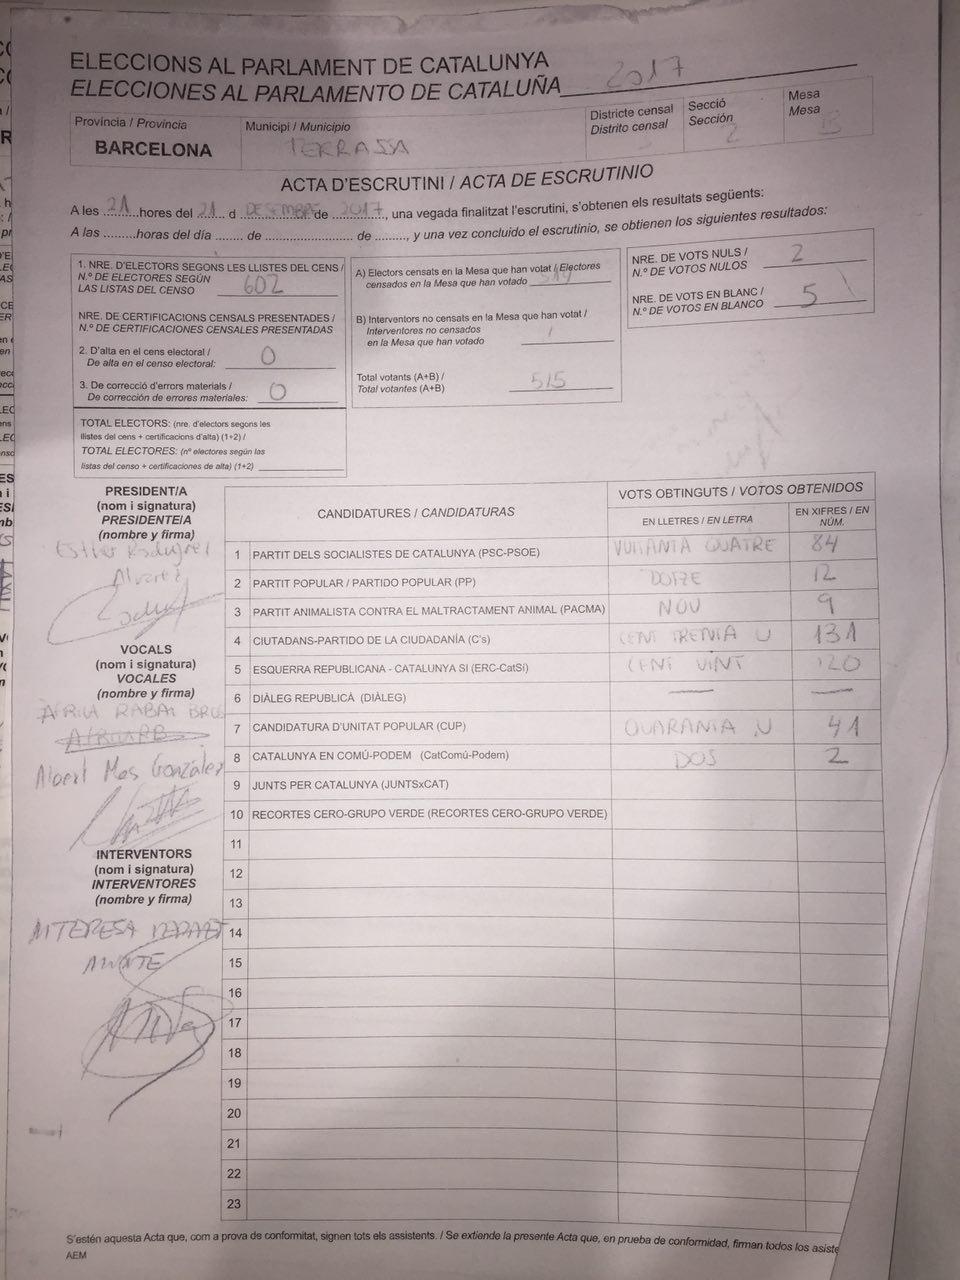 ELECCIONS AL PARLAMENT DE CATALUNYA
ELECCIONES AL PARLAMENTO DE CATALUÑA 2017
Província / Provincia
BARCELONA
Municipi / Municipio
TERRASSA
Districte censal
Distrito censal
Secció
Sección
2
Mesa
Mesa
B
ACTA D'ESCRUTINI / ACTA DE ESCRUTINIO
A les 21 hores del 21 d DESEMBRE de 2017, una vegada finalitzat l'escrutini, s'obtenen els resultats següents:
A las .........horas del día ........ de ......................... de ........, y una vez concluido el escrutinio, se obtienen los siguientes resultados:
1. NRE. D'ELECTORS SEGONS LES LLISTES DEL CENS /
N.º DE ELECTORES SEGÚN
LAS LISTAS DEL CENSO 602
NRE. DE CERTIFICACIONS CENSALS PRESENTADES /
N.º DE CERTIFICACIONES CENSALES PRESENTADAS
2. D'alta en el cens electoral /
De alta en el censo electoral: 0
3. De correcció d'errors materials /
De corrección de errores materiales: 0
TOTAL ELECTORS: (nre. d'electors segons les
llistes del cens + certificacions d'alta) (1+2) /
TOTAL ELECTORES: (nº electores según las
listas del censo + certificaciones de alta) (1+2)
A) Electors censats en la Mesa que han votat / Electores
censados en la Mesa que han votado 514
B) Interventors no censats en la Mesa que han votat /
Interventores no censados
en la Mesa que han votado 1
Total votants (A+B) /
Total votantes (A+B) 515
NRE. DE VOTS NULS /
N.º DE VOTOS NULOS 2
NRE. DE VOTS EN BLANC /
N.º DE VOTOS EN BLANCO 5
PRESIDENT/A
(nom i signatura)
PRESIDENTE/A
(nombre y firma)
Esther
Alvarez
VOCALS
(nom i signatura)
VOCALES
(nombre y firma)
Albert Mas González
INTERVENTORS
(nom i signatura)
INTERVENTORES
(nombre y firma)
CANDIDATURES / CANDIDATURAS
VOTS OBTINGUTS / VOTOS OBTENIDOS
EN LLETRES / EN LETRA
EN XIFRES / EN
NÚM.
1 PARTIT DELS SOCIALISTES DE CATALUNYA (PSC-PSOE) VUITANTA QUATRE 84
2 PARTIT POPULAR / PARTIDO POPULAR (PP) DOTZE 12
3 PARTIT ANIMALISTA CONTRA EL MALTRACTAMENT ANIMAL (PACMA) NOU 9
4 CIUTADANS-PARTIDO DE LA CIUDADANÍA (C's) CENT TRENTA U 131
5 ESQUERRA REPUBLICANA - CATALUNYA SI (ERC-CatSí) CENT VINT 120
6 DIÀLEG REPUBLICÀ (DIÀLEG) — —
7 CANDIDATURA D'UNITAT POPULAR (CUP) QUARANTA U 41
8 CATALUNYA EN COMÚ-PODEM (CatComú-Podem) DOS 2
9 JUNTS PER CATALUNYA (JUNTSxCAT)
10 RECORTES CERO-GRUPO VERDE (RECORTES CERO-GRUPO VERDE)
11
12
13
14
15
16
17
18
19
20
21
22
23
S'estén aquesta Acta que, com a prova de conformitat, signen tots els assistents. / Se extiende la presente Acta que, en prueba de conformidad, firman todos los asiste
AEM